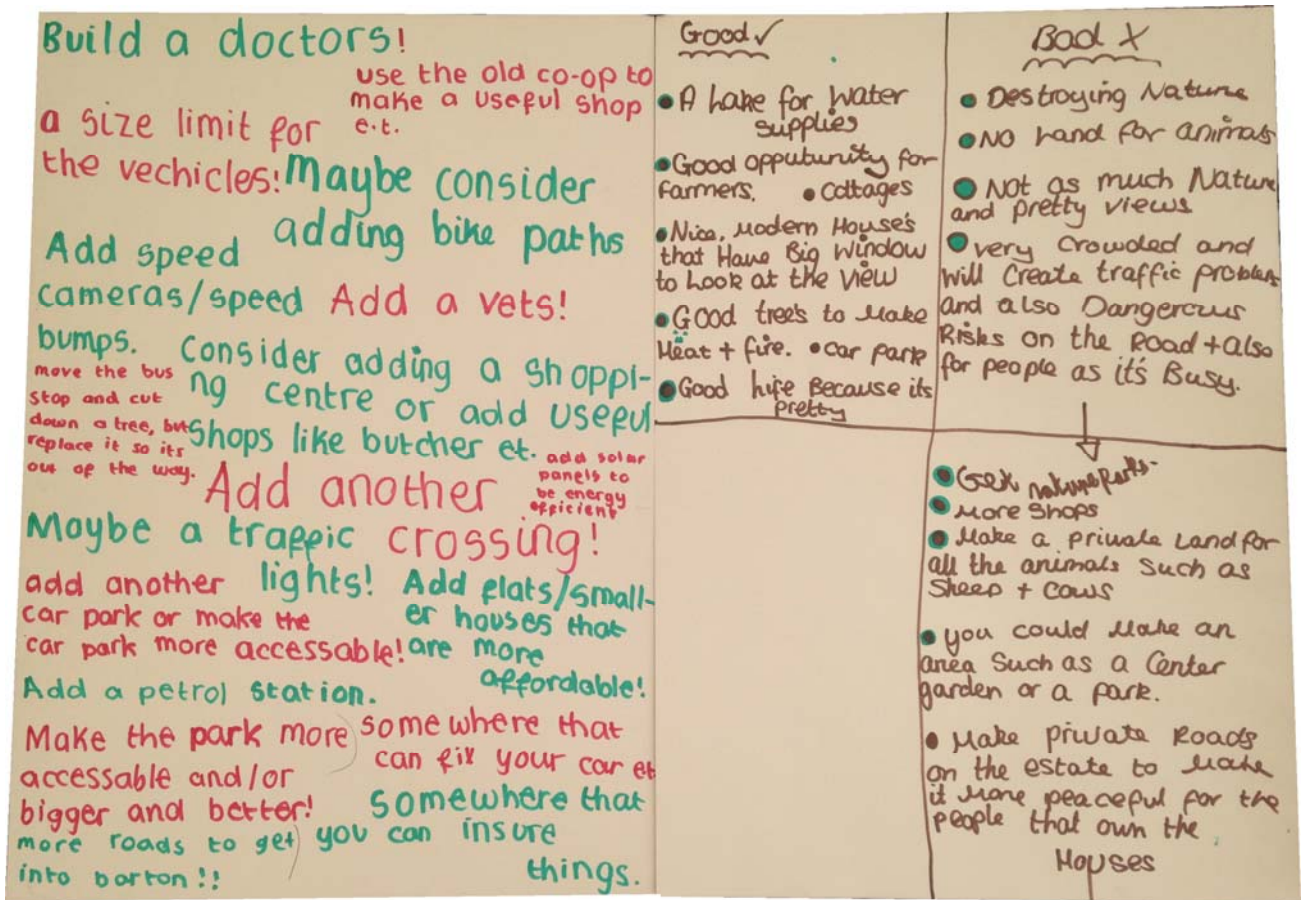 Build a doctors!
use the old co-op to
make a useful shop
e.t.
a size limit for
the vechicles!
Maybe consider
adding bike paths
Add speed
cameras/speed
bumps.
Add a vets!
Consider adding a shoppi-
ng centre or add useful
shops like butcher et.
move the bus
stop and cut
down a tree, but
replace it so its
out of the way.
add solar
panels to
be energy
efficient
Add another
crossing!
Maybe a traffic
lights!
add another
car park or make the
car park more accessable!
Add flats/small-
er houses that
are more
affordable!
Add a petrol station.
Make the park more
accessable and/or
bigger and better!
somewhere that
can fix your car et
more roads to get
into barton!!
somewhere that
you can insure
things.
Good ✓
• A Lake for Water
supplies
• Good opputunity for
farmers.
• Cottages
• Nice, Modern House's
that Have Big Window
to Look at the View
• Good tree's to Make
Heat + fire.
• car park
• Good life Because its
pretty
Bad X
• Destroying Nature
• No Land for animals
• Not as much Nature
and pretty views
• very Crowded and
will Create traffic problems
and also Dangerous
Risks on the Road + also
for people as it's Busy.
• Get nature Parks.
• More Shops
• Make a private Land for
all the animals Such as
Sheep + Cows
• you could Make an
area Such as a Center
garden or a park.
• Make private Roads
on the estate to Make
it More peaceful for the
people that own the
Houses